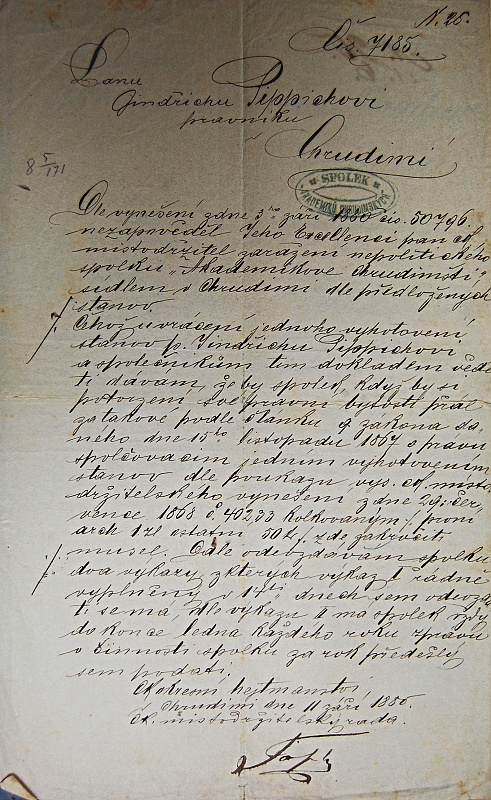 N. 26.
Čis. 7185.
Panu
Jindřichu Pippichovi
pravníku
Chrudimi
8 5/VII
SPOLEK
AKADEMIKŮ CHRUDIMSKÝCH
Dle vynešení z dne 3ho září 1880 čis. 50796.
nezapověděl Jeho Excellenci pan cs.
místodržitel zaražení nepolitického
spolku „Akademikové Chrudimští"
sídlem v Chrudimi dle předložených
stanov.
Chož uvrácení jednoho vyhotovení
stanov p. Jindřichu Pippichovi
a společníkům tím dokladem vědě
ti dávám, že by spolek, když by si
potvrzení své právní bytosti přál
za takové podle článku 9 zákona da
ného dne 15ho listopadu 1867 o právu
spolčovacím jedním vyhotovením
stanov dle poukazu vys. cs. místo
držitelského vynešení z dne 29. čer
vence 1868 č. 40233 kolkovaným první
arch 1 zl ostatní 50 k. zde zakročit
musel. Dále odevzdávám spolku
dva výkazy z kterých výkaz I řádně
vyplněný v 14ti dnech sem odevzda
ti se má, dle výkazu II má spolek vždy
do konce ledna každého roku zprávu
o činnosti spolku za rok předešlý
sem podati.
Ck okresní hejtmanství
Chrudimi dne 11 září 1880.
Ck. místodržitelský rada.